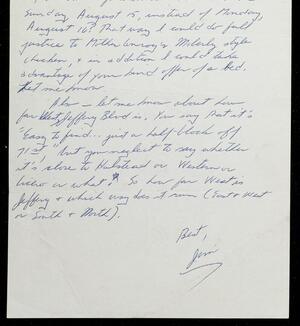 Sunday, August 15, instead of Monday,
August 16? That way I could do full
justice to Mother Conroy's Milerky style
chicken, & in addition I could take
advantage of your kind offer of a bed.
Let me know.
Also — let me know about how
far West Jeffery Blvd is. You say that it's
"Easy to find... just a half-block off
71st" but you neglect to say whether
it's close to Halstead or Western
or what? So how far West is
Jeffery & which way does it run (East & West
or South & North).
Best,
Jim